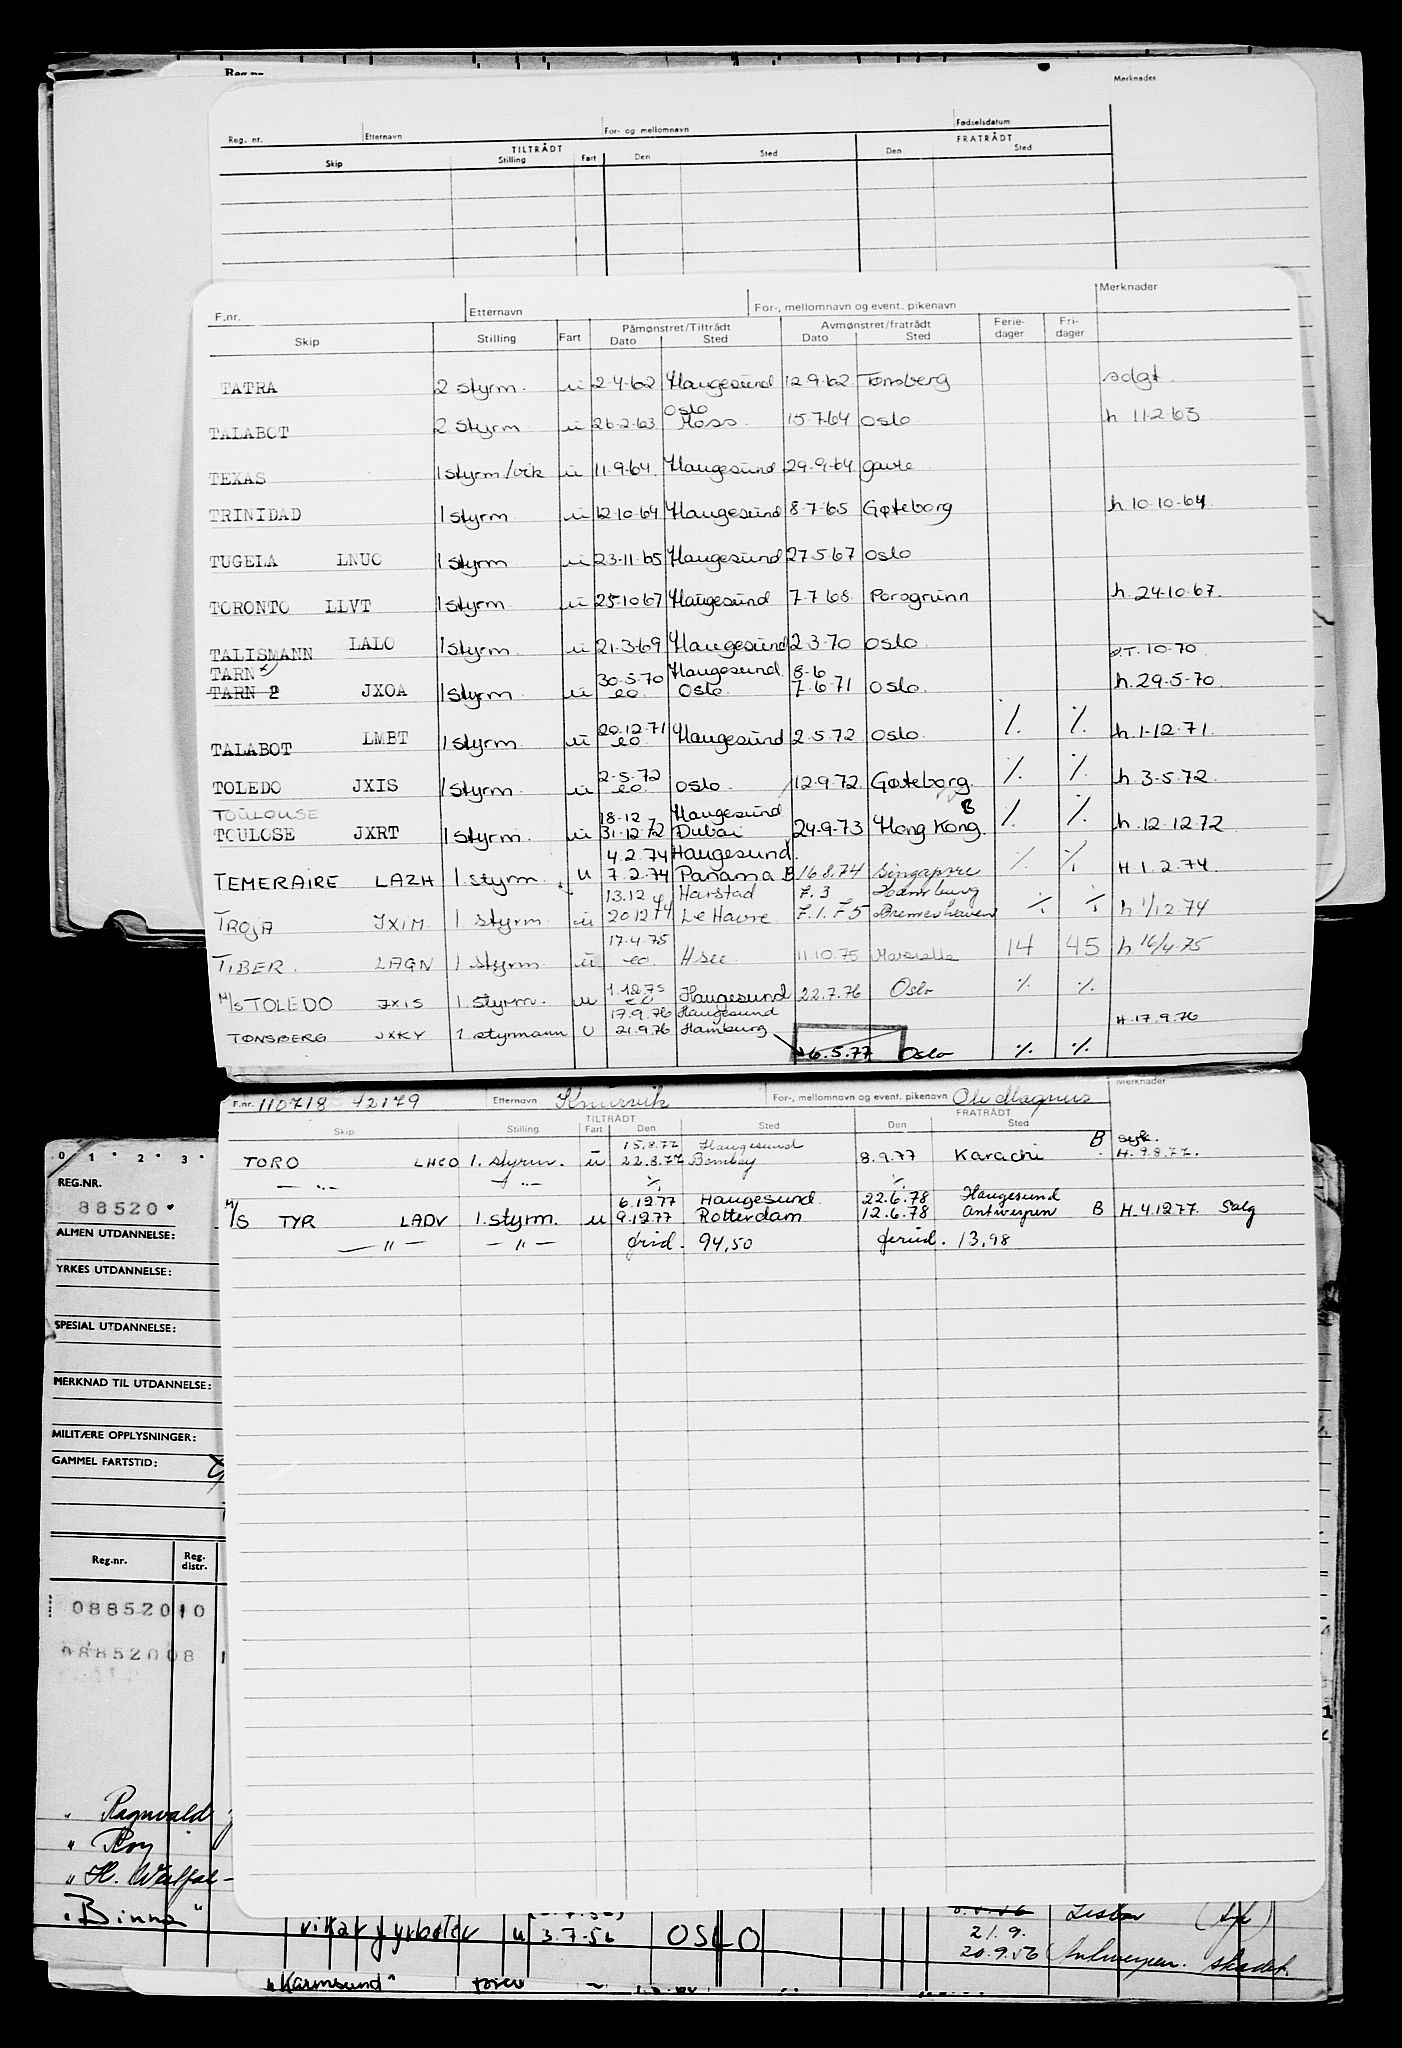 Reg. nr. Etternavn For- og mellomnavn Fødselsdatum Merknader
TILTRÅDT FRATRÅDT
Skip Stilling Fart Den Sted Den Sted
F.nr. Etternavn For-, mellomnavn og event. pikenavn Merknader
Påmønstret/Tiltrådt Avmønstret/fratrådt Ferie- Fri-
Skip Stilling Fart Dato Sted Dato Sted dager dager
TATRA 2 styrm. u 2-4-62 Haugesund 12.9.62 Tønsberg
Oslo
TALABOT 2 styrm u 26-2-63 Moss. 15.7.64 Oslo h 11-2-63
TEXAS 1 styrm/vik u 11-9-64 Haugesund 29-9-64 Gavle
TRINIDAD 1 styrm u 12-10-64 Haugesund 8-7-65 Gøteborg h 10-10-64
TUGELA LNUO 1 styrm u 23-11-65 Haugesund 27.5-67 Oslo
TORONTO LLVT 1 styrm u 25-10-67 Haugesund 7-7-68 Porsgrunn h. 24-10-67.
TALISMANN LALO 1 styrm u 21-3-69 Haugesund 2-3-70 Oslo 10-70
TARN 30-5-70 Haugesund 8-6
TARN 2 JXOA 1 styrm u eo. Oslo. 7-6-71 Oslo. h. 29-5-70.
20-12-71
TALABOT LMBT 1 styrm u eo. Haugesund 2.5.72 Oslo ٪ ٪ h. 1-12-71
2-5-72
TOLEDO JXIS 1 styrm u eo. Oslo. 12.9.72 Gøteborg. ٪ ٪ h. 3-5-72.
TOULOUSE 18-12 Haugesund B
TOULOSE JXRT 1 styrm. u 31-12-72 Dubai 24-9-73 Hong Kong. ٪ ٪ h. 12-12-72
4.2.74 Haugesund.
TEMERAIRE LAZH 1. styrm. U 7.2.74 Panama B 16.8.74 Singapore ٪ ٪ H 1.2.74.
13.12 Harstad 7.3 Hamburg
TROJA JXIM 1. styrm u 20.12.74 Le Havre 5 Bremerhaven ٪ ٪ h 1/12.74
17.4.75
TIBER. LAGN 1 styrm u eo. H see. 11.10.75 14 45 h 16/4-75
1.12.75
M/S TOLEDO JXIS 1. styrm. u eo Haugesund 22.7.76 Oslo ٪ ٪
17.9.76 Haugesund
TØNSBERG JXKY 1. styrmann U 21.9.76 Hamburg H. 17.9.76
6.5.77 Oslo ٪ ٪
F.nr. 110718 42179 Etternavn Knurvik For-, mellomnavn og event. pikenavn Ole Magnus Merknader
TILTRÅDT FRATRÅDT
Skip Stilling Fart Den Sted Den Sted
15.8.77 Haugesund B syk.
TORO LHCO 1. styrm. u 22.8.77 Bombay 8.9.77 Karachi H. 9.8.77.
— " — — " — ٪ ٪
6.12.77 Haugesund 22.6.78 Haugesund
M/S TYR LADV 1. styrm. u 9.12.77 Rotterdam 12.6.78 Antwerpen B H. 4.12.77. Salg
— " — — " — frid. 94,50 feried. 13,98
0 1 2 3
REG.NR.
88520
ALMEN UTDANNELSE:
YRKES UTDANNELSE:
SPESIAL UTDANNELSE:
MERKNAD TIL UTDANNELSE:
MILITÆRE OPPLYSNINGER:
GAMMEL FARTSTID:
Reg.nr. Reg. distr.
08852010
08852008
" Ragnvald
" Roy
" H. Westfal-
"Binna" vikar fyrbøter u 3-7-56 OSLO
21.9.
20.9.56 Antwerpen. skadet.
"Karmsund"